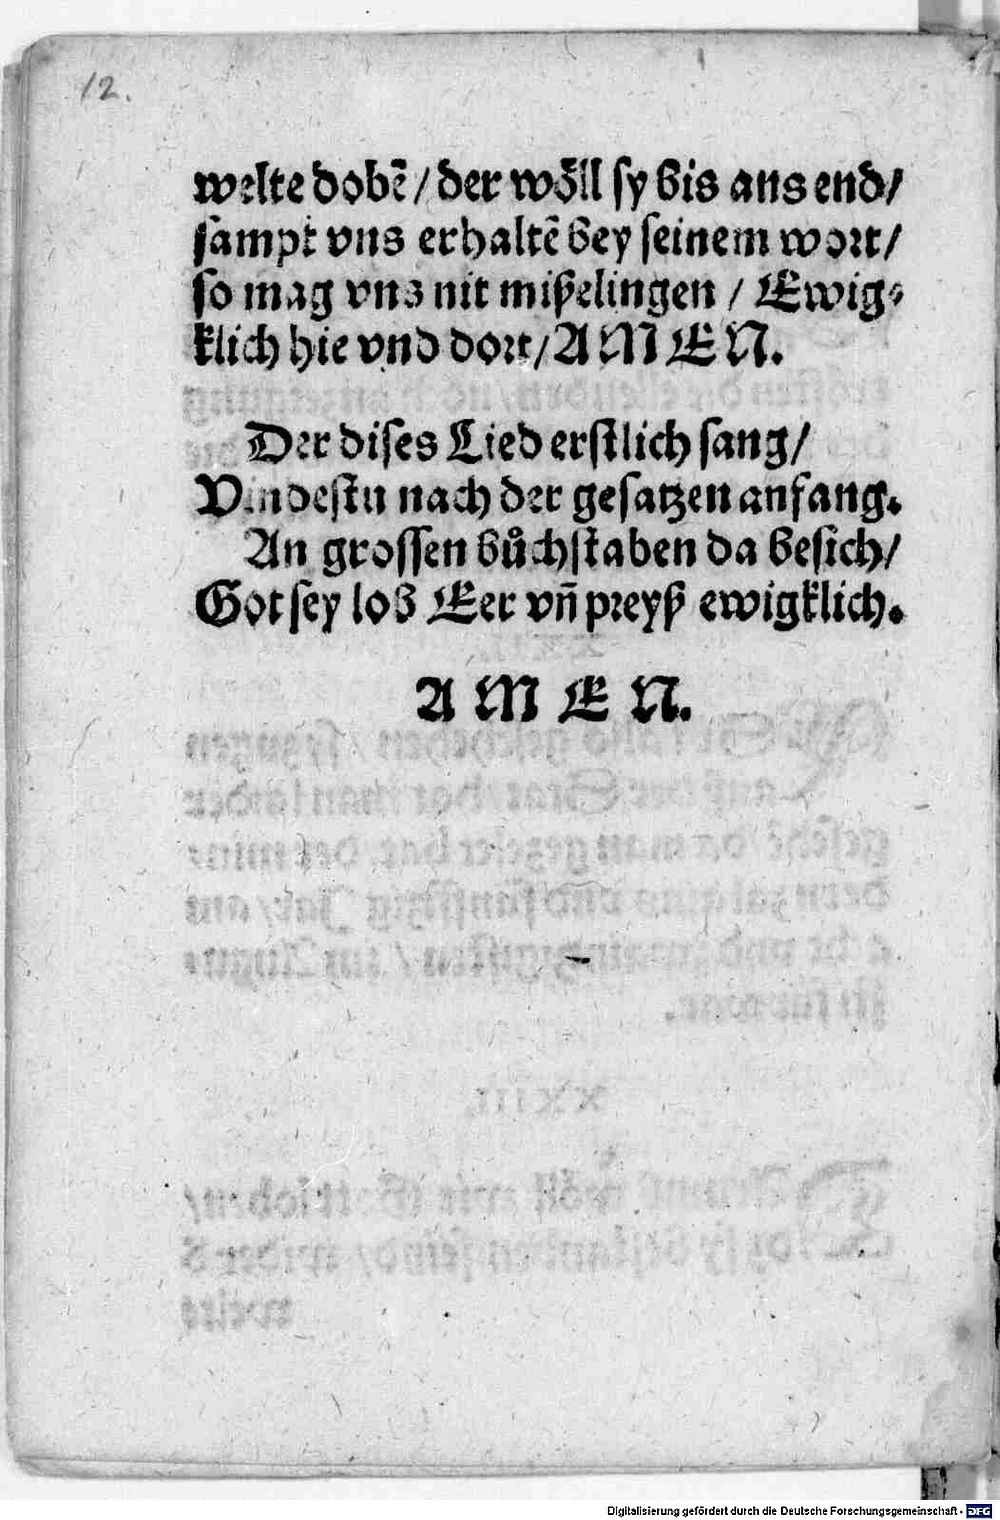 12.
welte dobē / der wöll sy bis ans end /
sampt vns erhaltē bey seinem wort /
so mag vns nit mißelingen / Ewig⸗
klich hie vnd dort / AMEN.
Der dises Lied erstlich sang /
Vindestu nach der gesatzen anfang.
An grossen bůchstaben da besich /
Got sey lob Eer vñ preyß ewigklich.
AMEN.
Digitalisierung gefördert durch die Deutsche Forschungsgemeinschaft - DFG